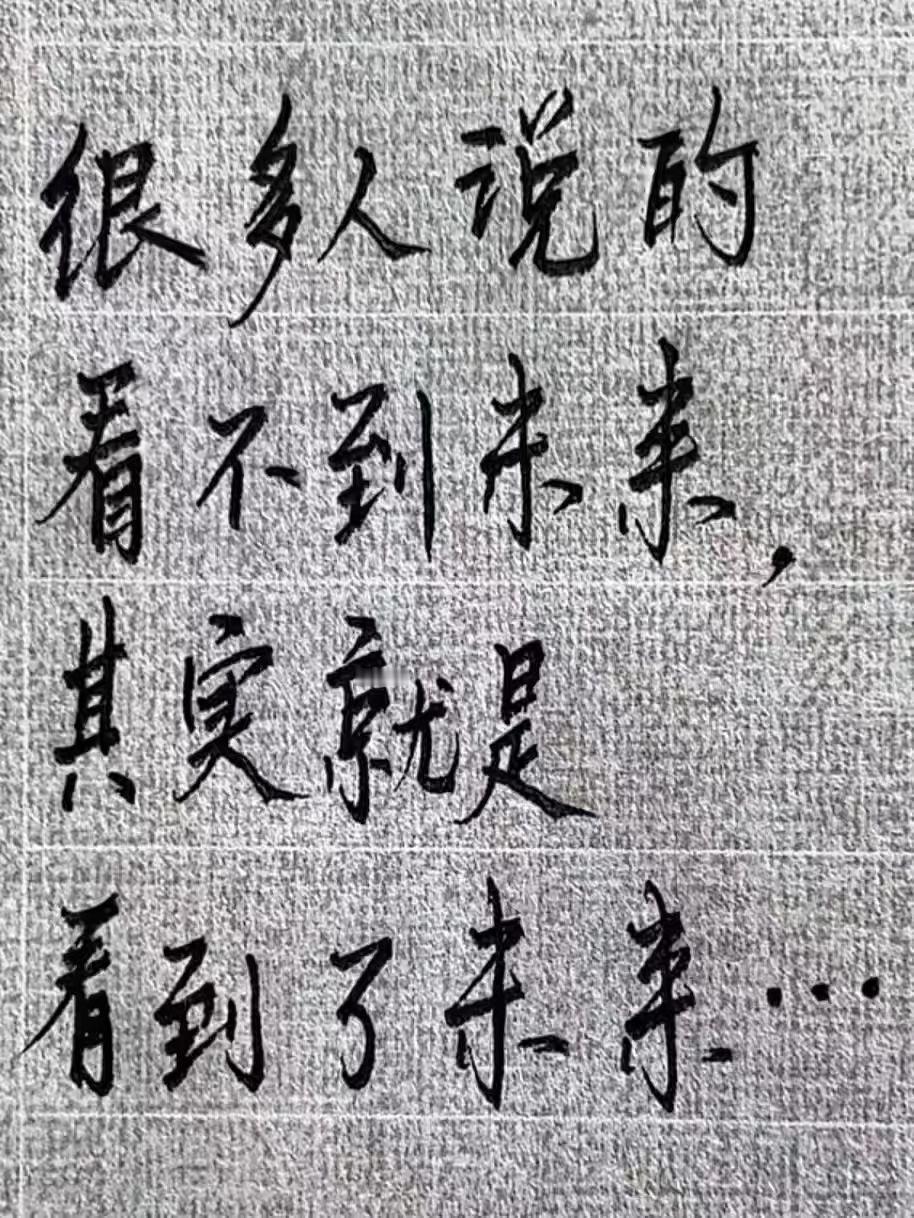 很多人说的
看不到未来,
其实就是
看到了未来…